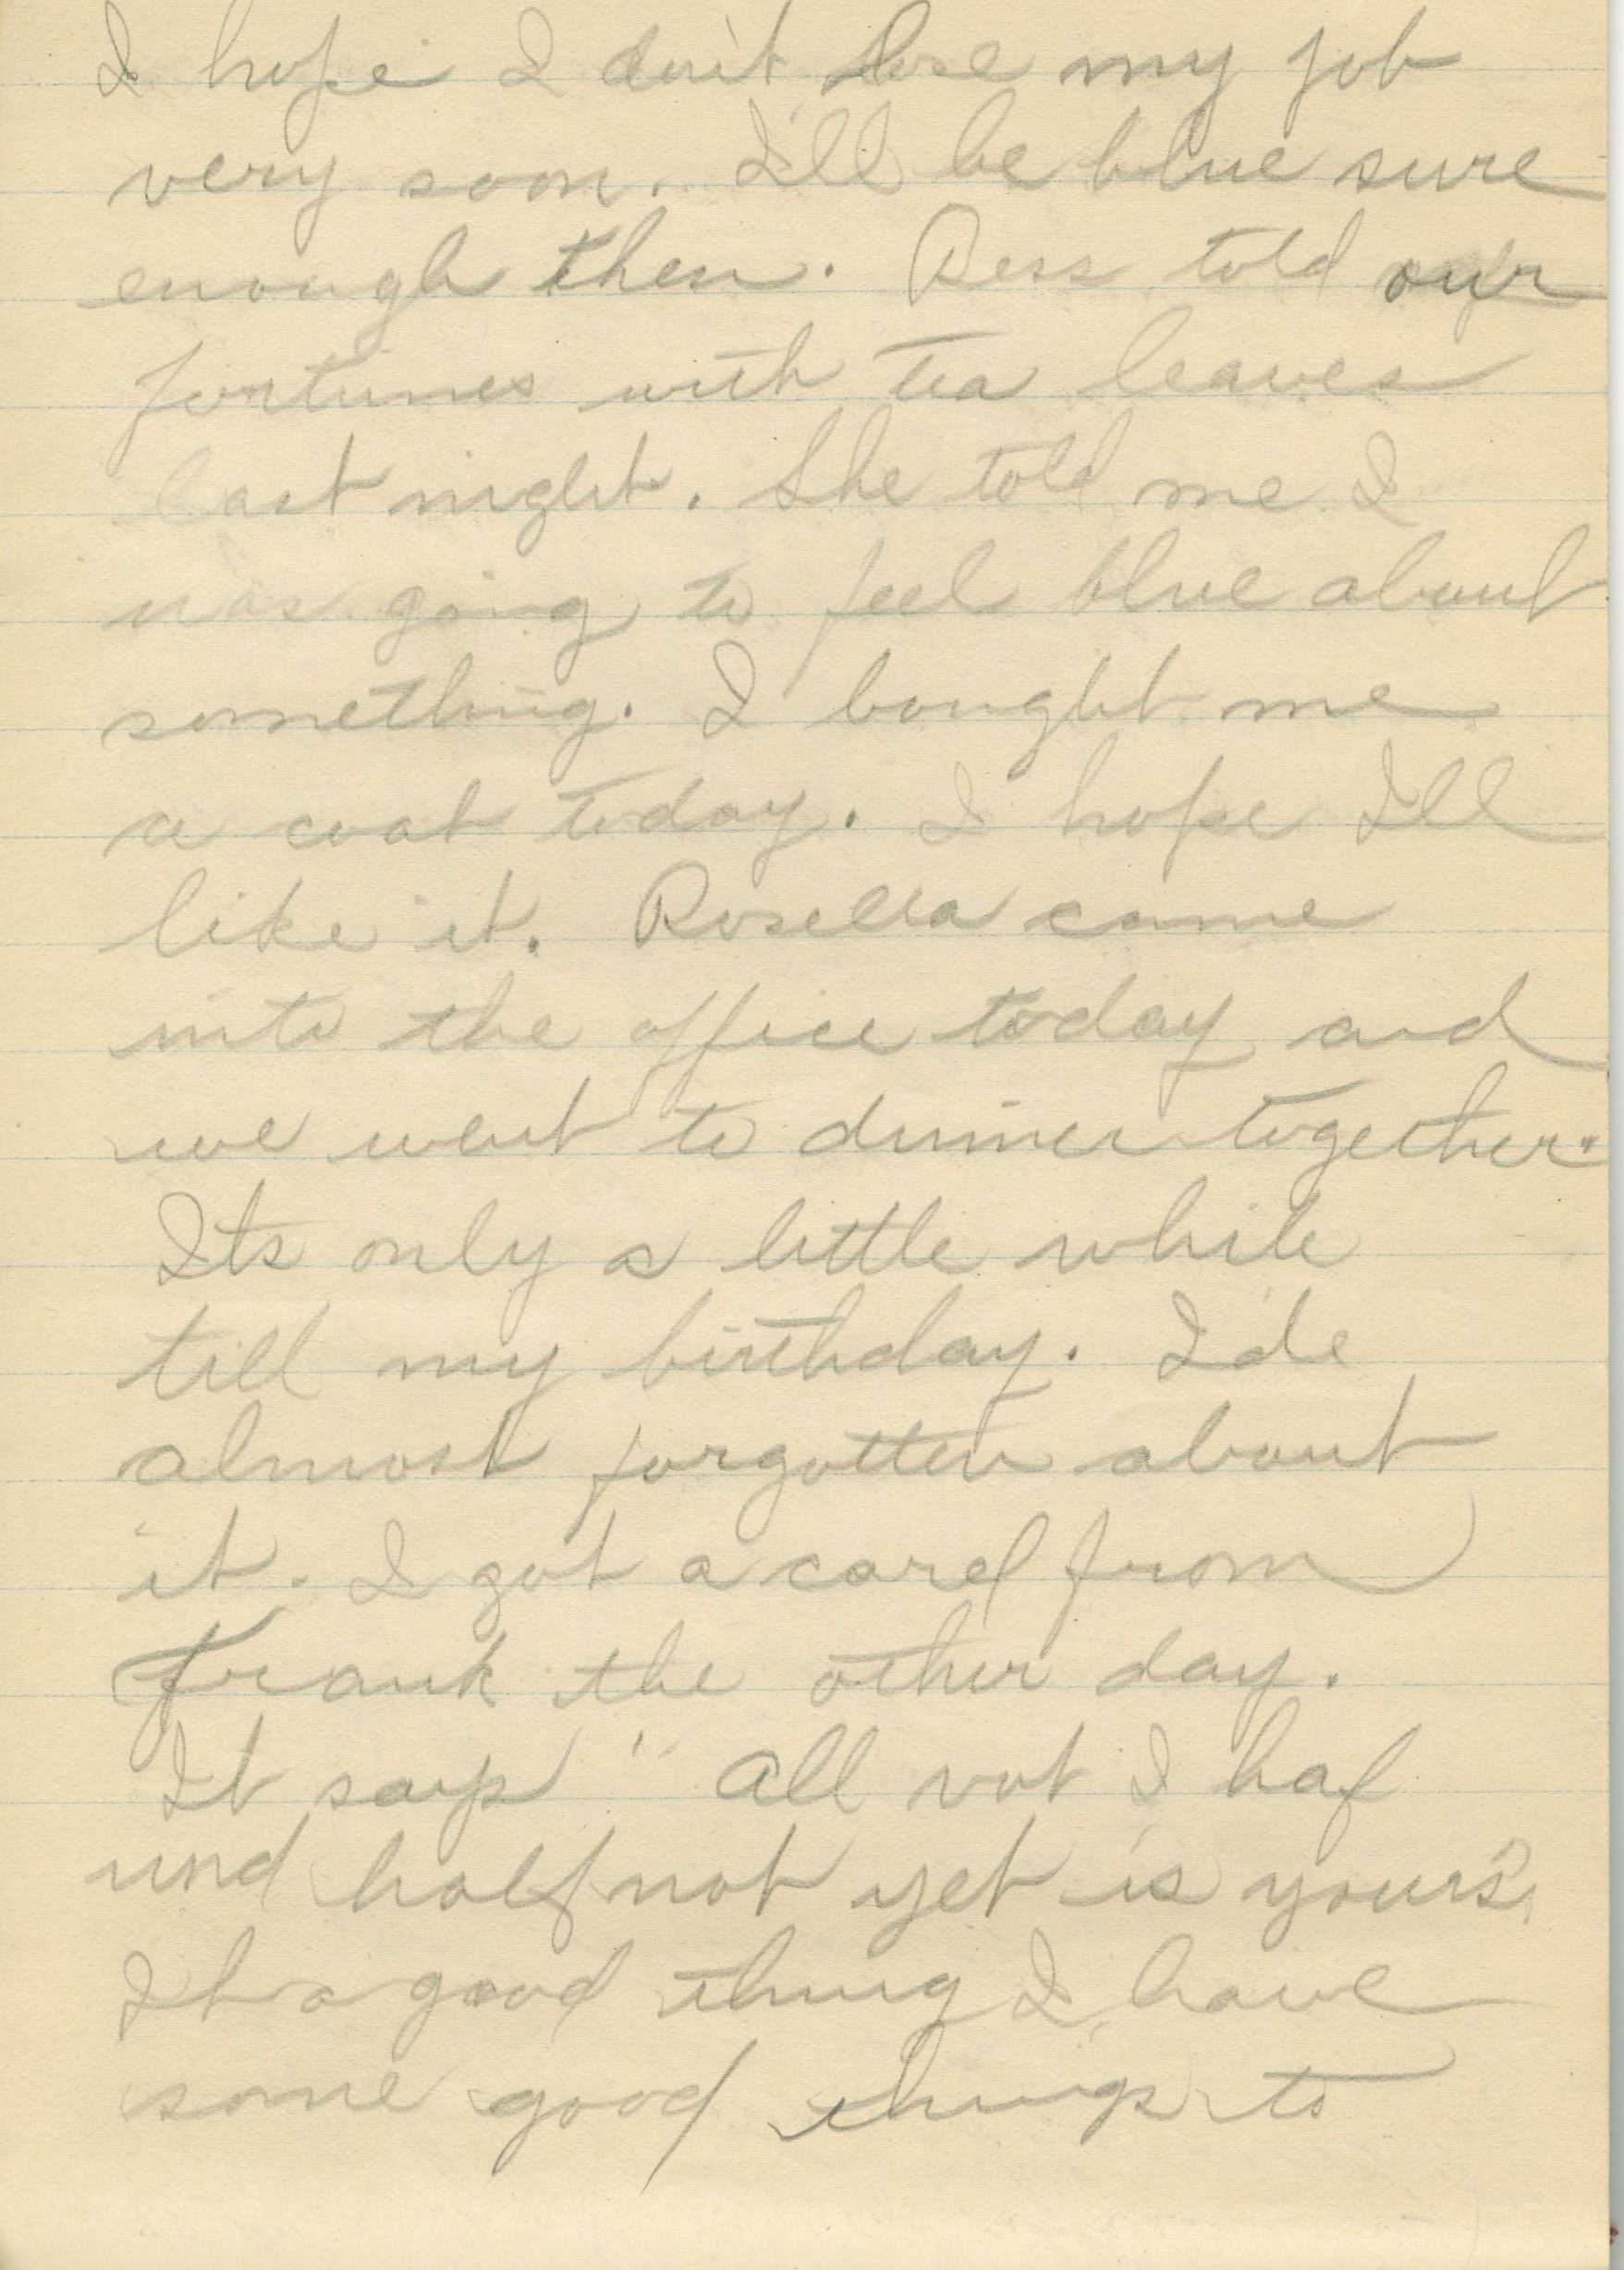 I hope I don't lose my job
very soon. I'll be blue sure
enough then. Bess told our
fortunes with tea leaves
last night. She told me I
was going to feel blue about
something. I bought me
a coat today. I hope I'll
like it. Rosella came
into the office today and
we went to dinner together.
Its only a little while
till my birthday. I'de
almost forgotten about
it. I got a card from
Frank the other day.
It says "All vot I haf
und half not yet is yours"
It a good thing I have
some good things to